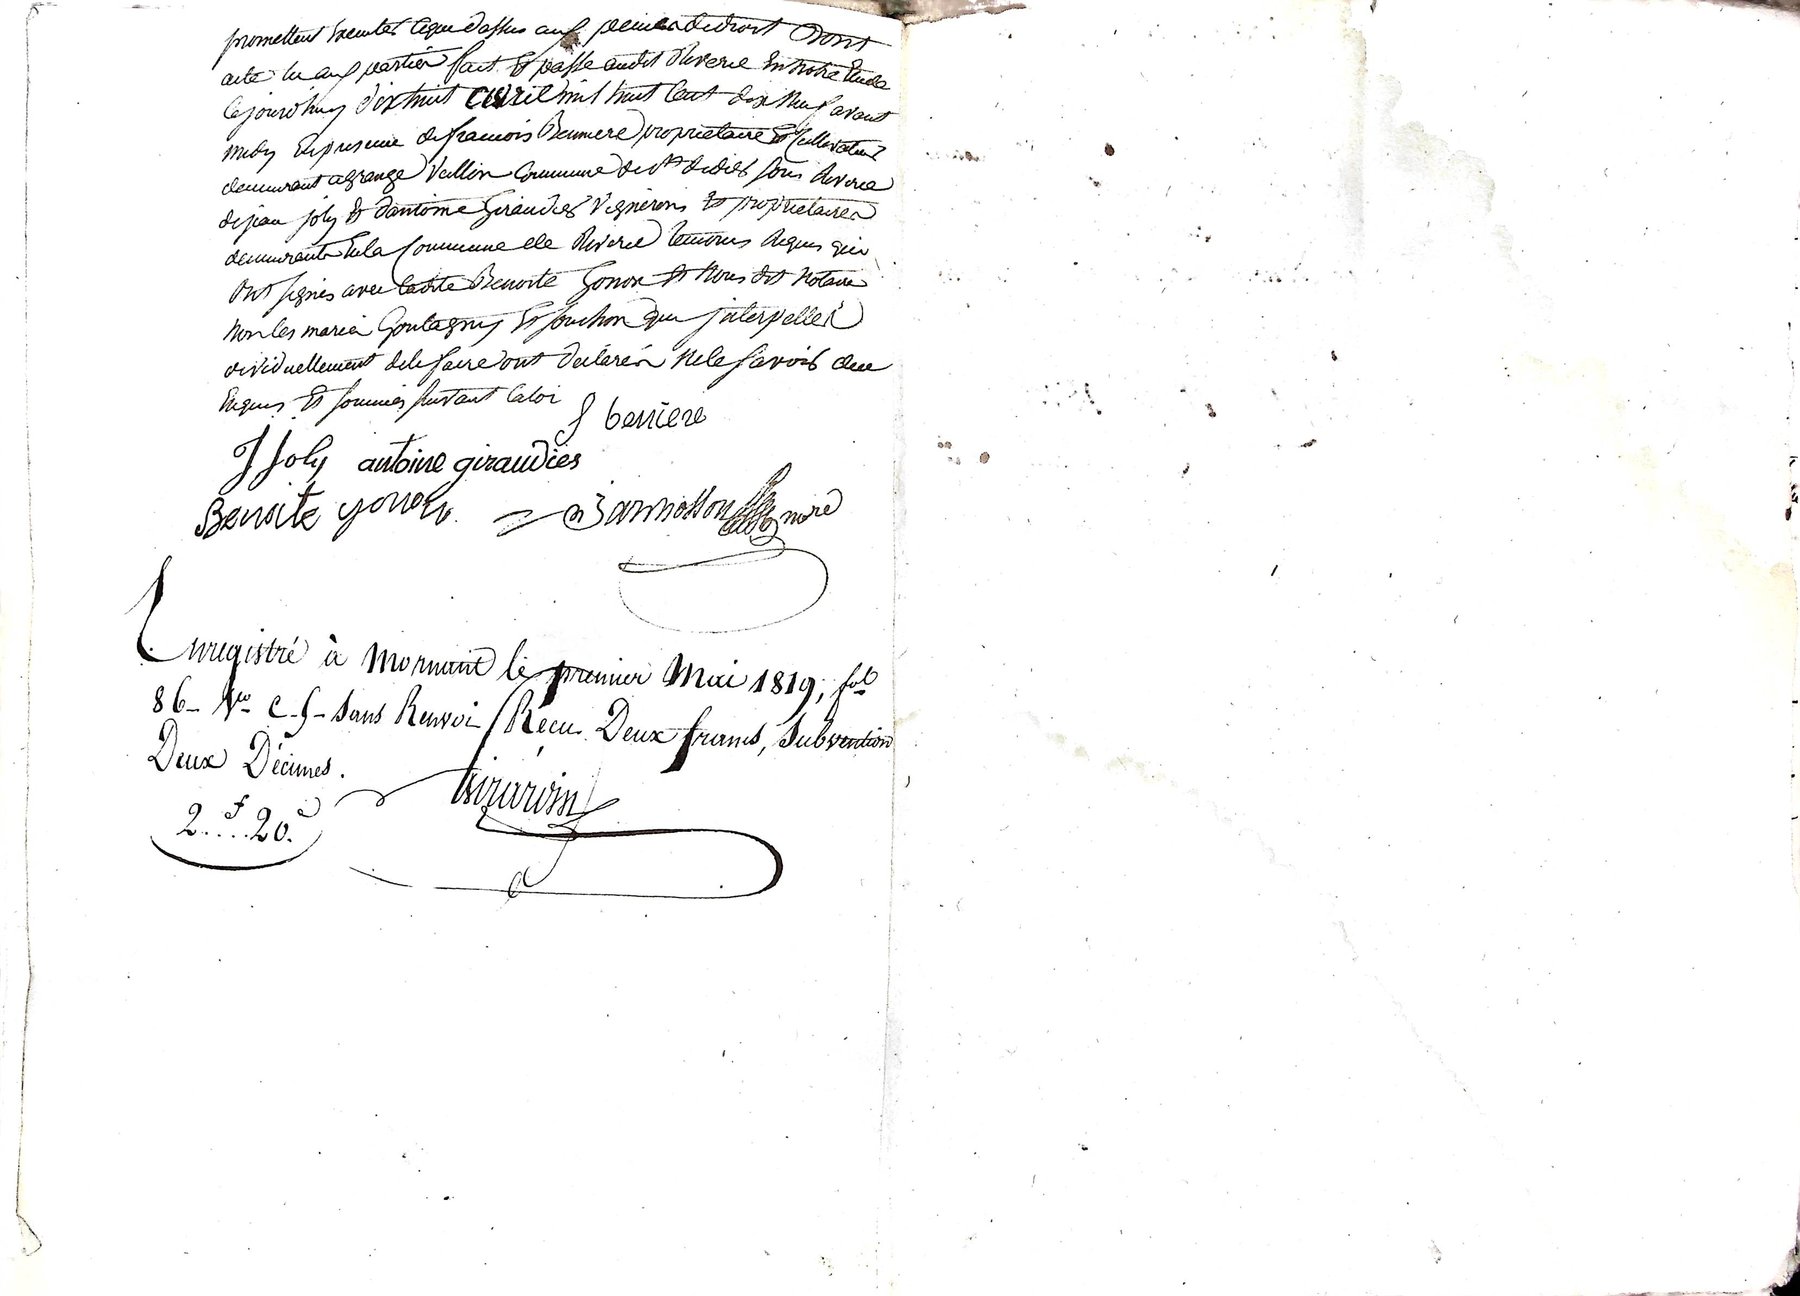 promettent executer ceque dessus aux peines de droit Dont
acte lu aux parties fait et passé audit Riverie En notre Etude
Cejourd'huy dixhuit avril mil huit Cent dix neuf avant
midy En presence de francois Berriere proprietaire et Cultivateur
demeurant agrange Vallin Commune de st didier sous Riverie
de jean joly et d'antoine Giraudier Vignerons et proprietaires
demeurants En la Commune de Riverie temoins Requis qui
Ont signés avec ladite Benoite Gonon et Nous dit Notaire
Non les mariés Goutagny et souchon qui jnterpellés
dividuellement dele faire ont déclarés Nele savoir dece
Enquis et sommés suivant laloi
f berriere
J Joly antoine giraudier
Benoite gonon nore
Enregistré à Mornant le premier Mai 1819, fol
86 Vo C. 5 sans Renvoi Recu Deux francs, Subvention
Deux Décimes.
Girardin
2f..20c